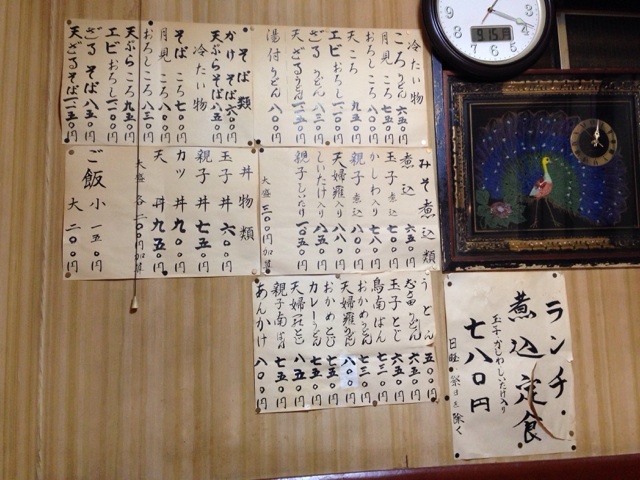 冷たい物
ころうどん 六五〇円
月見ころ 七五〇円
おろしころ 八〇〇円
天ころ 九五〇円
エビおろし 一一〇〇円
ざるうどん 八三〇円
天ざるうどん 一一五〇円
湯付うどん 八〇〇円
そば類
かけそば 六〇〇円
天ぷらそば 八五〇円
冷たい物
そばころ 七〇〇円
月見ころ 八〇〇円
おろしころ 八三〇円
天ぷらころ 九五〇円
エビおろし 一一〇〇円
ざるそば 八五〇円
天ざるそば 一一五〇円
みそ煮込類
煮込 六五〇円
玉子煮込 七〇〇円
かしわ入り 七八〇円
親子煮込 八〇〇円
天婦羅入り 八八〇円
しいたけ入り 八五〇円
親子しいたけ 一〇五〇円
大盛 三〇〇円加算
丼物類
玉子丼 六〇〇円
親子丼 七五〇円
カツ丼 九〇〇円
天丼 九五〇円
大盛 各二〇〇円加算
ご飯 小 一五〇円
大 二〇〇円
うどん 五〇〇円
うどん 六五〇円
玉子とじ 六五〇円
鳥南ばん 七三〇円
おかめうどん 七三〇円
天婦羅うどん 八〇〇円
おかめとじ 七五〇円
カレーうどん 七五〇円
天婦羅とじ 八五〇円
親子南ばん 七五〇円
あんかけ 八〇〇円
ランチ・
煮込定食
玉子かしわしいたけ入り
七八〇円
日曜・祭日を除く